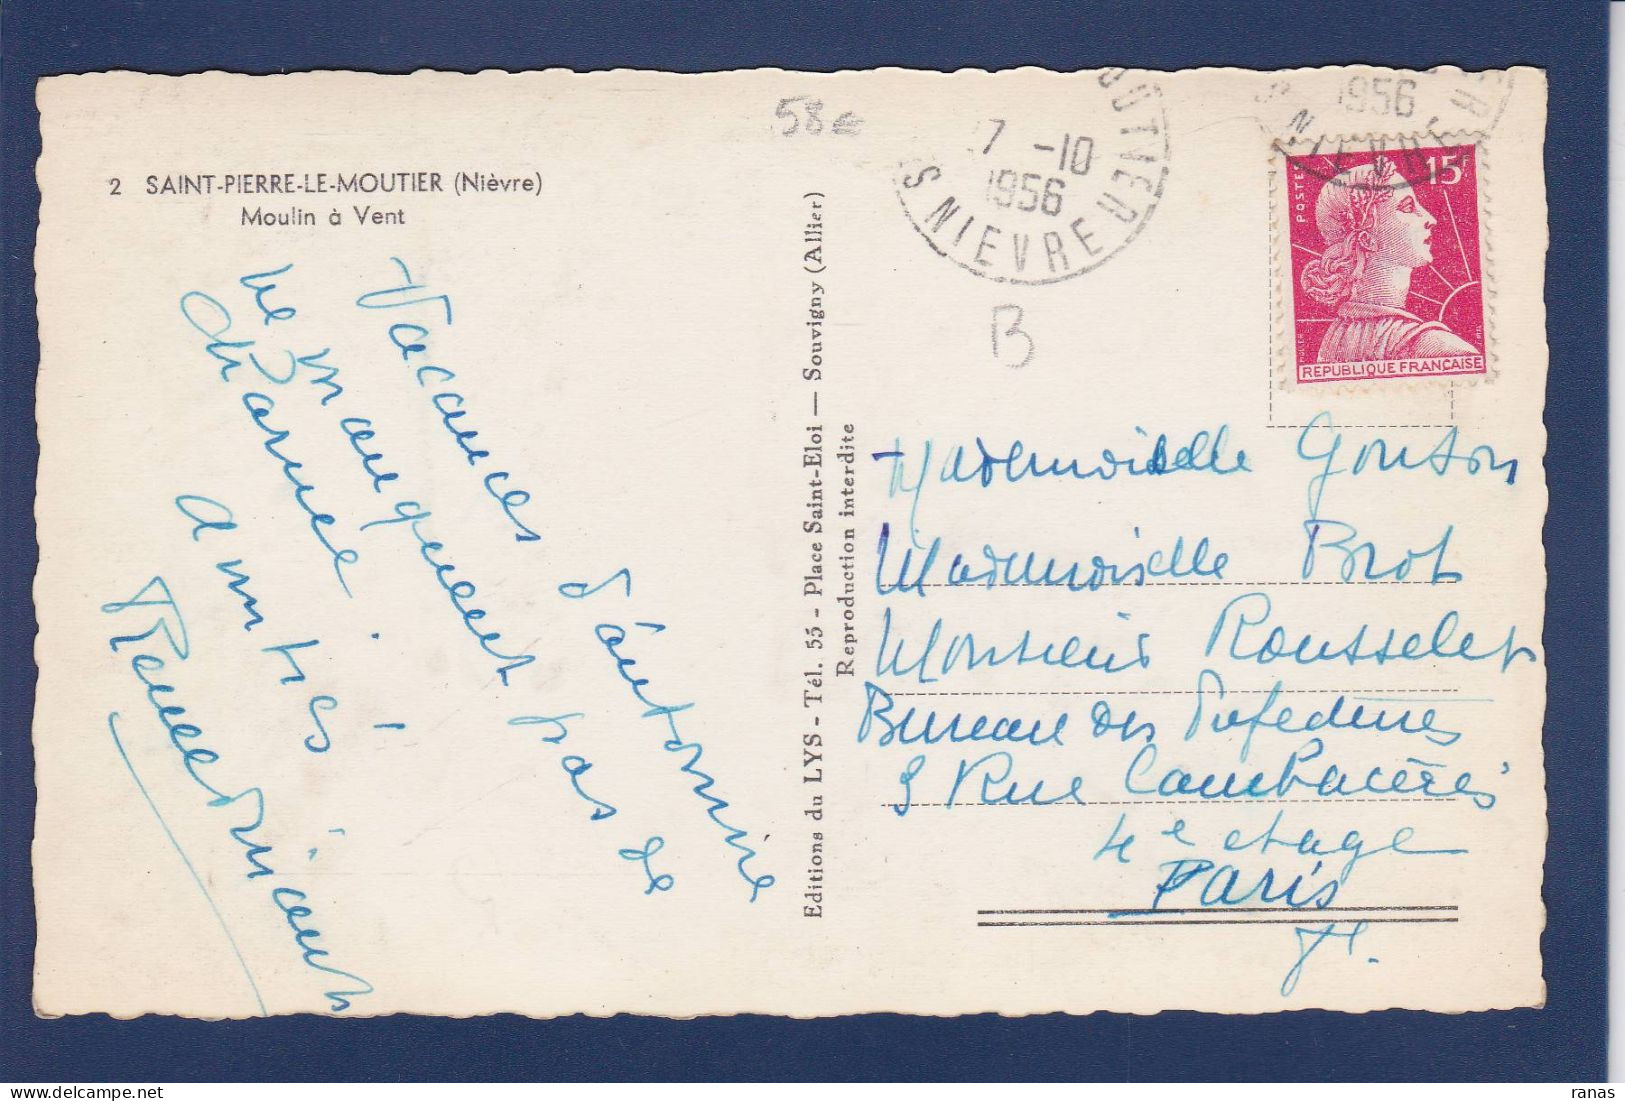 58 €
2 SAINT-PIERRE-LE-MOUTIER (Nièvre)
Moulin à Vent
Vacances d'automne
ne manquent pas de
charme.
amitiés
Editions du LYS - Tél. 55 - Place Saint-Eloi — Souvigny (Allier)
Reproduction interdite
7 -10
1956
OUTIER
S NIEVRE
B
1956
S NIEVRE
POSTES
15F
REPUBLIQUE FRANÇAISE
Mademoiselle
Mademoiselle Brot
Monsieur Rousselet
Bureau des
Rue Cambacérès
4e etage
Paris
ranas